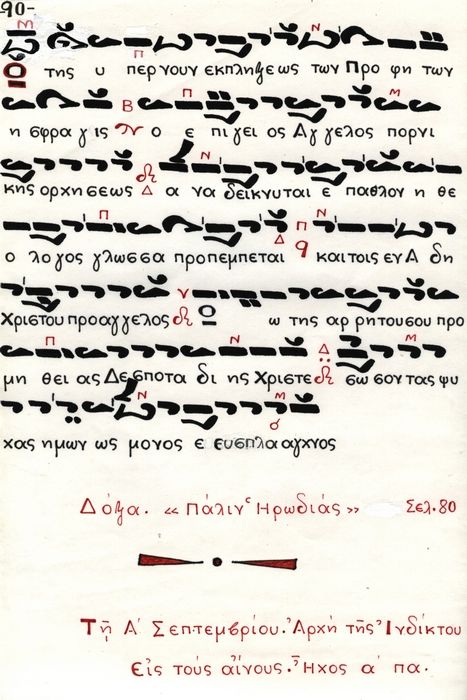 90-
106 της υ περ νουν εκπληξεως των Προ φη των
η σφρα γις ο ε πι γει ος Αγ γελος πορνι
κης ορχη σεως Δ α να δεικνυται ε παθλον η θε
ο λο γος γλωσσα προπεμπεται και τοις εν Α δη
Χριστου προαγγελος ω της αρ ρητου σου προ
μη θει ας Δεσποτα δι ης Χριστε σω σον τας ψυ
χας ημων ως μονος ε ευσπλα αγχνος
Δόξα. «Πάλιν Ἡρωδιάς» Σελ. 80
Τῇ Α΄ Σεπτεμβρίου. Ἀρχὴ τῆς Ἰνδίκτου
Εἰς τοὺς αἴνους. Ἦχος α΄ πα.